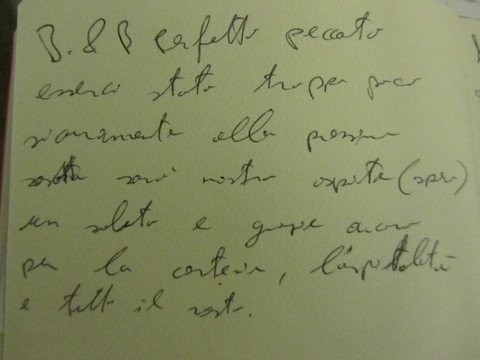 B. & B perfetto peccato
esserci stato troppo poco
sicuramente alla prossima
sarà nostro ospite (spero)
un saluto e grazie ancora
per la cortesia, l'ospitalità
e tutto il resto.